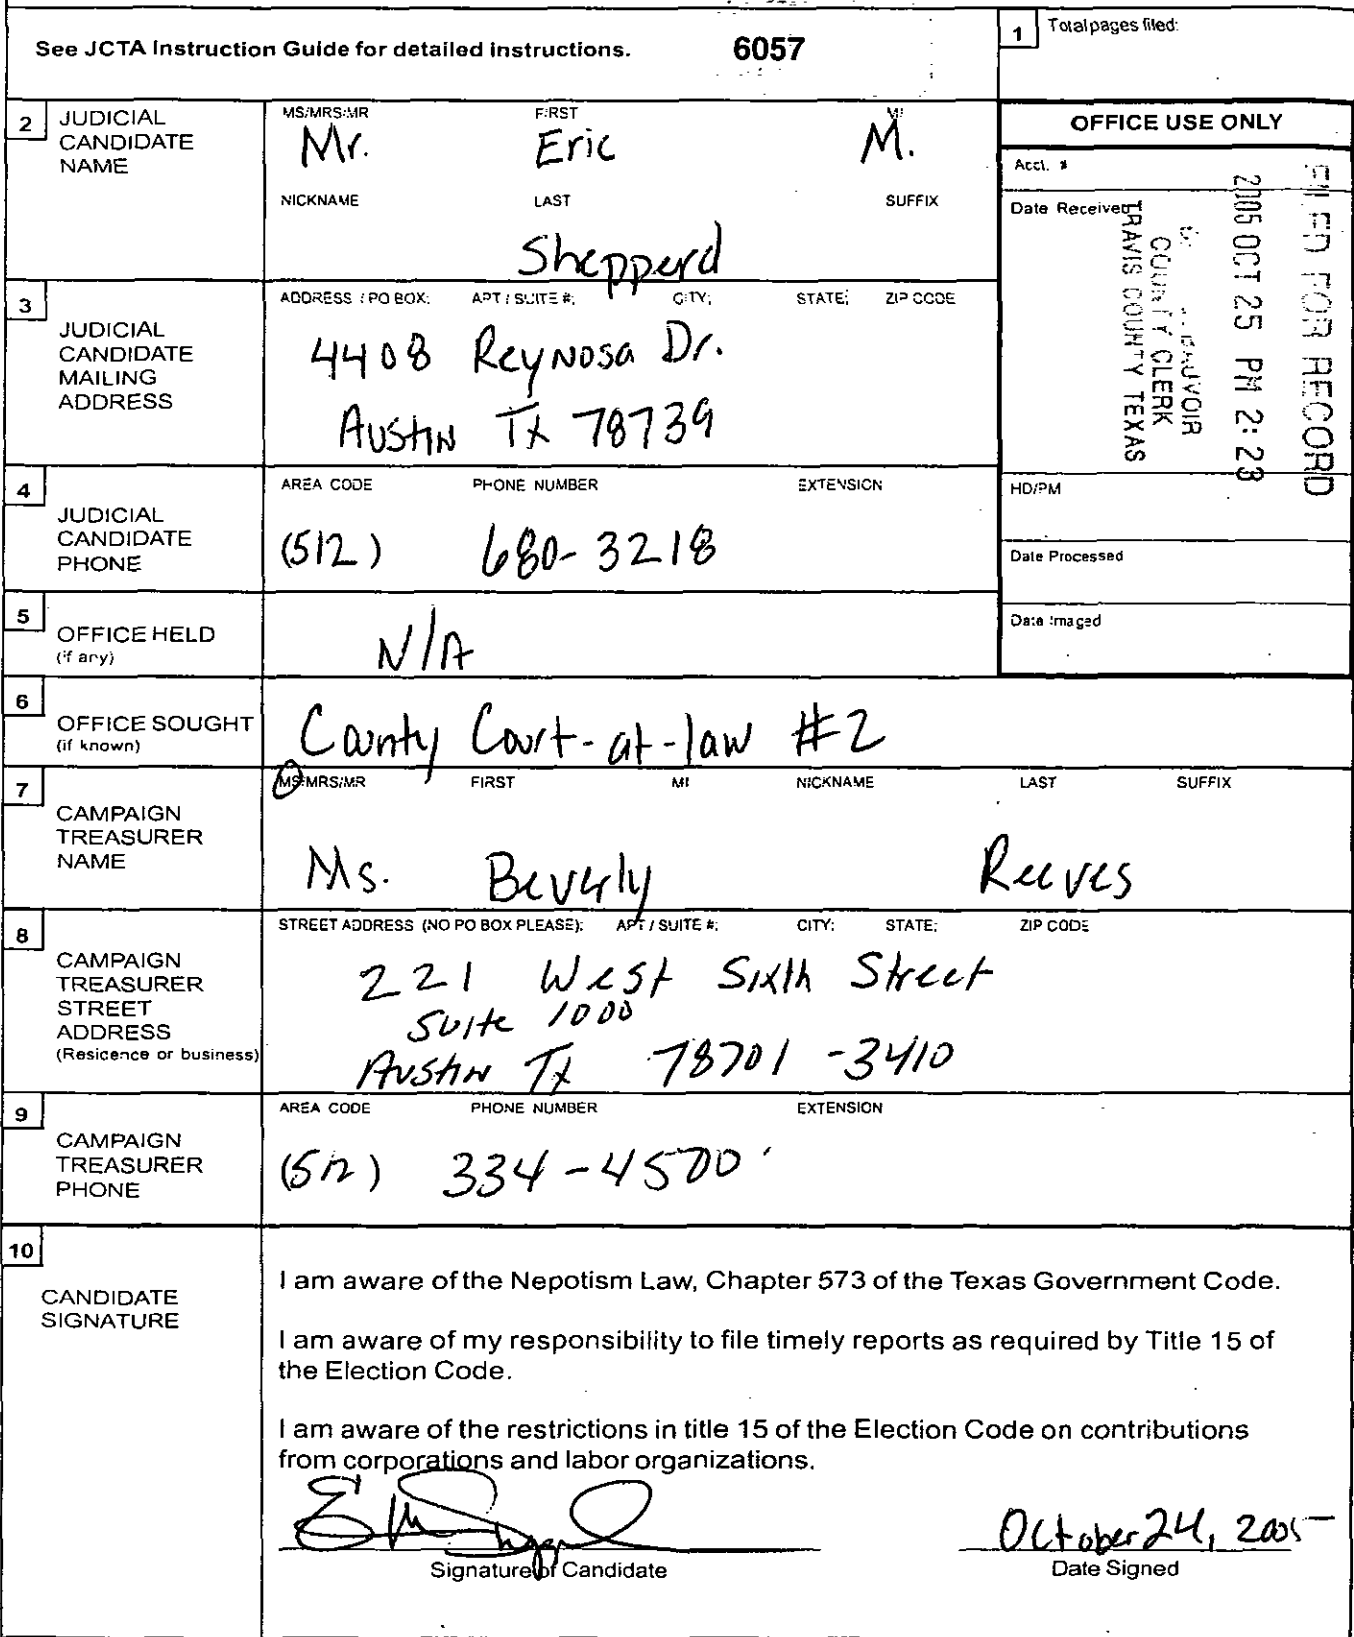 See JCTA Instruction Guide for detailed instructions. 6057
1 Total pages filed:
2 JUDICIAL CANDIDATE NAME
MS/MRS/MR FIRST MI
Mr. Eric M.
NICKNAME LAST SUFFIX
Shepperd
OFFICE USE ONLY
Acct. #
Date Received
FILED FOR RECORD
2005 OCT 25 PM 2:23
COUNTY CLERK
TRAVIS COUNTY TEXAS
HD/PM
Date Processed
Date Imaged
3 JUDICIAL CANDIDATE MAILING ADDRESS
ADDRESS / PO BOX; APT / SUITE #; CITY; STATE; ZIP CODE
4408 Reynosa Dr.
Austin Tx 78739
4 JUDICIAL CANDIDATE PHONE
AREA CODE PHONE NUMBER EXTENSION
(512) 680-3218
5 OFFICE HELD (if any)
N/A
6 OFFICE SOUGHT (if known)
County Court-at-law #2
7 CAMPAIGN TREASURER NAME
MS/MRS/MR FIRST MI NICKNAME LAST SUFFIX
Ms. Beverly Reeves
8 CAMPAIGN TREASURER STREET ADDRESS (Residence or business)
STREET ADDRESS (NO PO BOX PLEASE); APT / SUITE #; CITY; STATE; ZIP CODE
221 West Sixth Street
Suite 1000
Austin Tx 78701-3410
9 CAMPAIGN TREASURER PHONE
AREA CODE PHONE NUMBER EXTENSION
(512) 334-4500
10 CANDIDATE SIGNATURE
I am aware of the Nepotism Law, Chapter 573 of the Texas Government Code.
I am aware of my responsibility to file timely reports as required by Title 15 of
the Election Code.
I am aware of the restrictions in title 15 of the Election Code on contributions
from corporations and labor organizations.
October 24, 2005
Signature of Candidate Date Signed